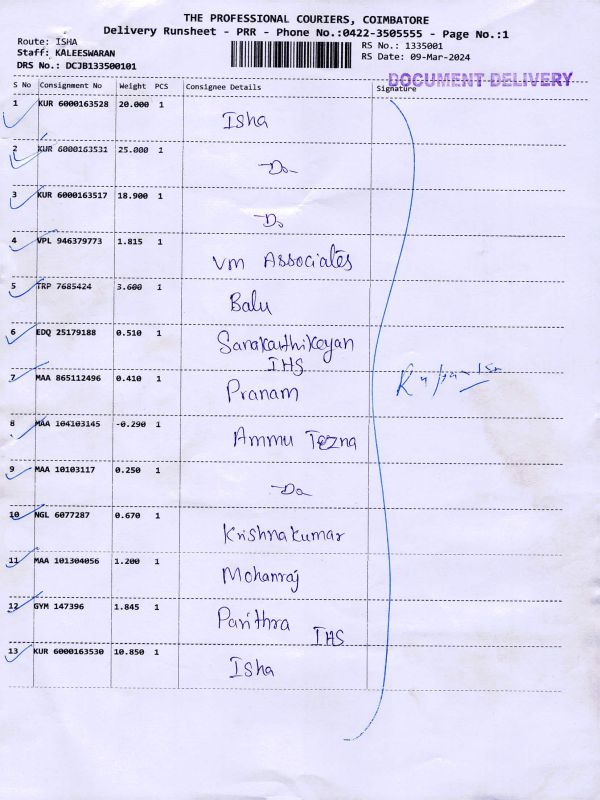 THE PROFESSIONAL COURIERS, COIMBATORE
Delivery Runsheet - PRR - Phone No.:0422-3505555 - Page No.:1
Route: ISHA
Staff: KALEESWARAN
DRS No.: DCJB133500101
RS No.: 1335001
RS Date: 09-Mar-2024
DOCUMENT DELIVERY
S No Consignment No Weight PCS Consignee Details Signature
1 KUR 6000163528 20.000 1 Isha
2 KUR 6000163531 25.000 1 Do
3 KUR 6000163517 18.900 1 Do
4 VPL 946379773 1.815 1 Vm Associates
5 TRP 7685424 3.600 1 Balu
6 EDQ 25179188 0.510 1 Sanakarthikeyan
IHS
7 MAA 865112496 0.410 1 Pranam
8 MAA 104103145 -0.290 1 Ammu
9 MAA 10103117 0.250 1 Do
10 NGL 6077287 0.670 1 Krishnakumar
11 MAA 101304056 1.200 1 Mohanraj
12 GYM 147396 1.845 1 Pavithra
IHS
13 KUR 6000163530 10.850 1 Isha